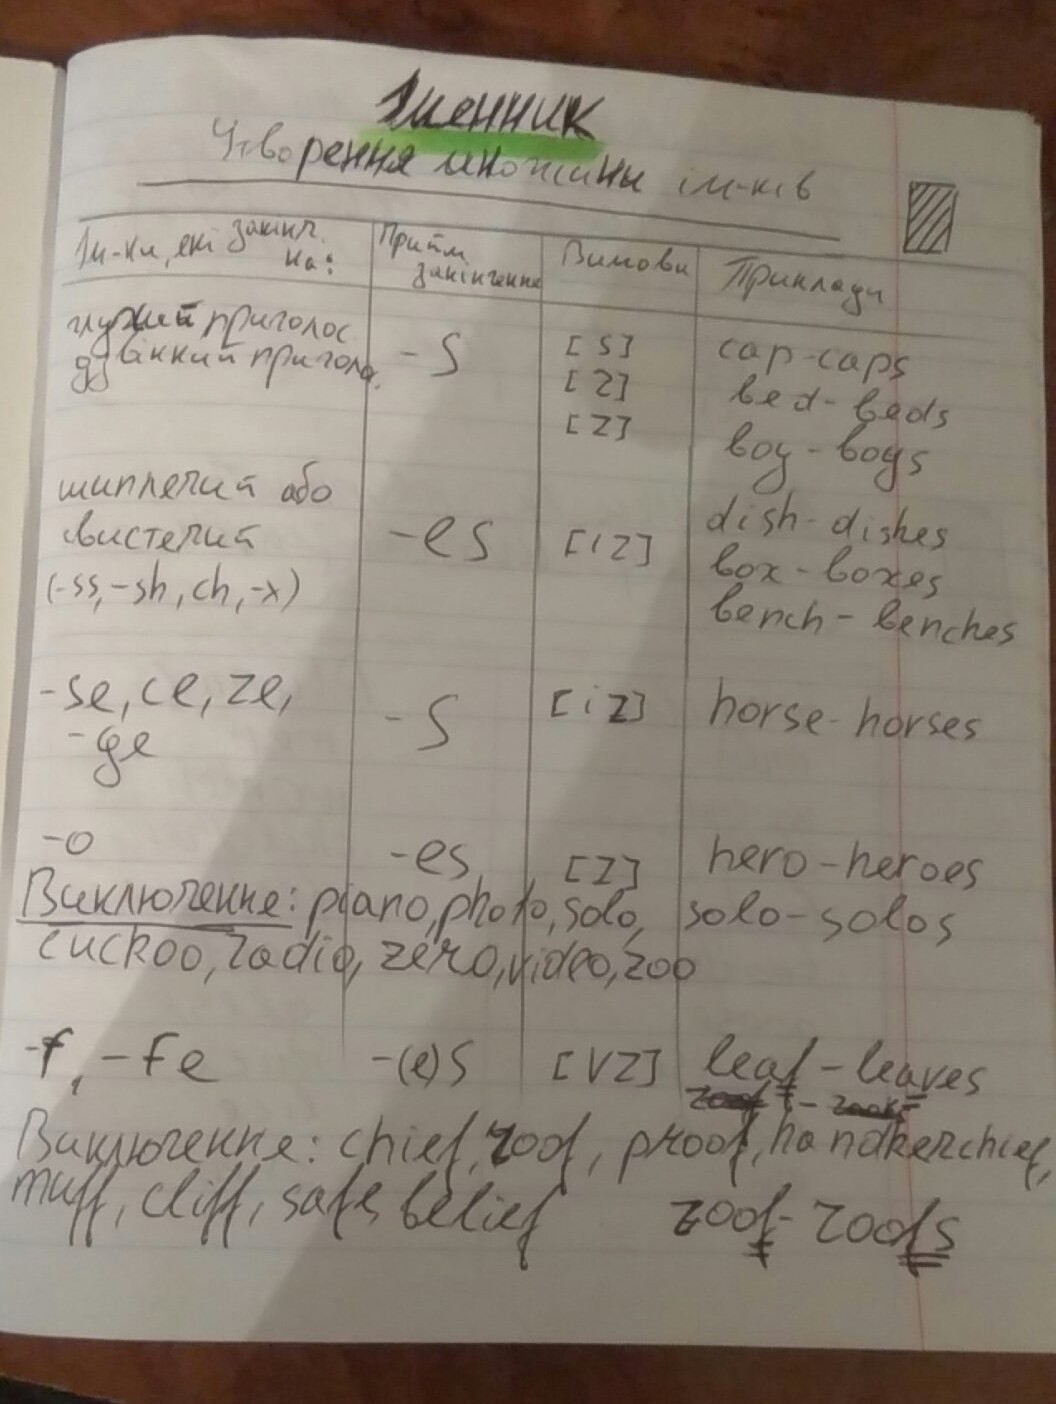 Іменник
Утворення множини ім-ків
Ім-ки, які закінч. на:
Прийм. закінчення
Вимова
Приклади
глухий приголос.
дзвінкий приголос.
-s
[s]
[z]
[z]
cap-caps
bed-beds
boy-boys
шиплячий або
свистячий
(-ss, -sh, ch, -x)
-es
[iz]
dish-dishes
box-boxes
bench-benches
-se, ce, ze,
-ge
-s
[iz]
horse-horses
-o
-es
[z]
hero-heroes
Виключення: piano, photo, solo,
solo-solos
cuckoo, radio, zero, video, zoo
-f, -fe
-(e)s
[vz]
leaf-leaves
Виключення: chief, roof, proof, handkerchief,
muff, cliff, safe, belief
roof-roofs